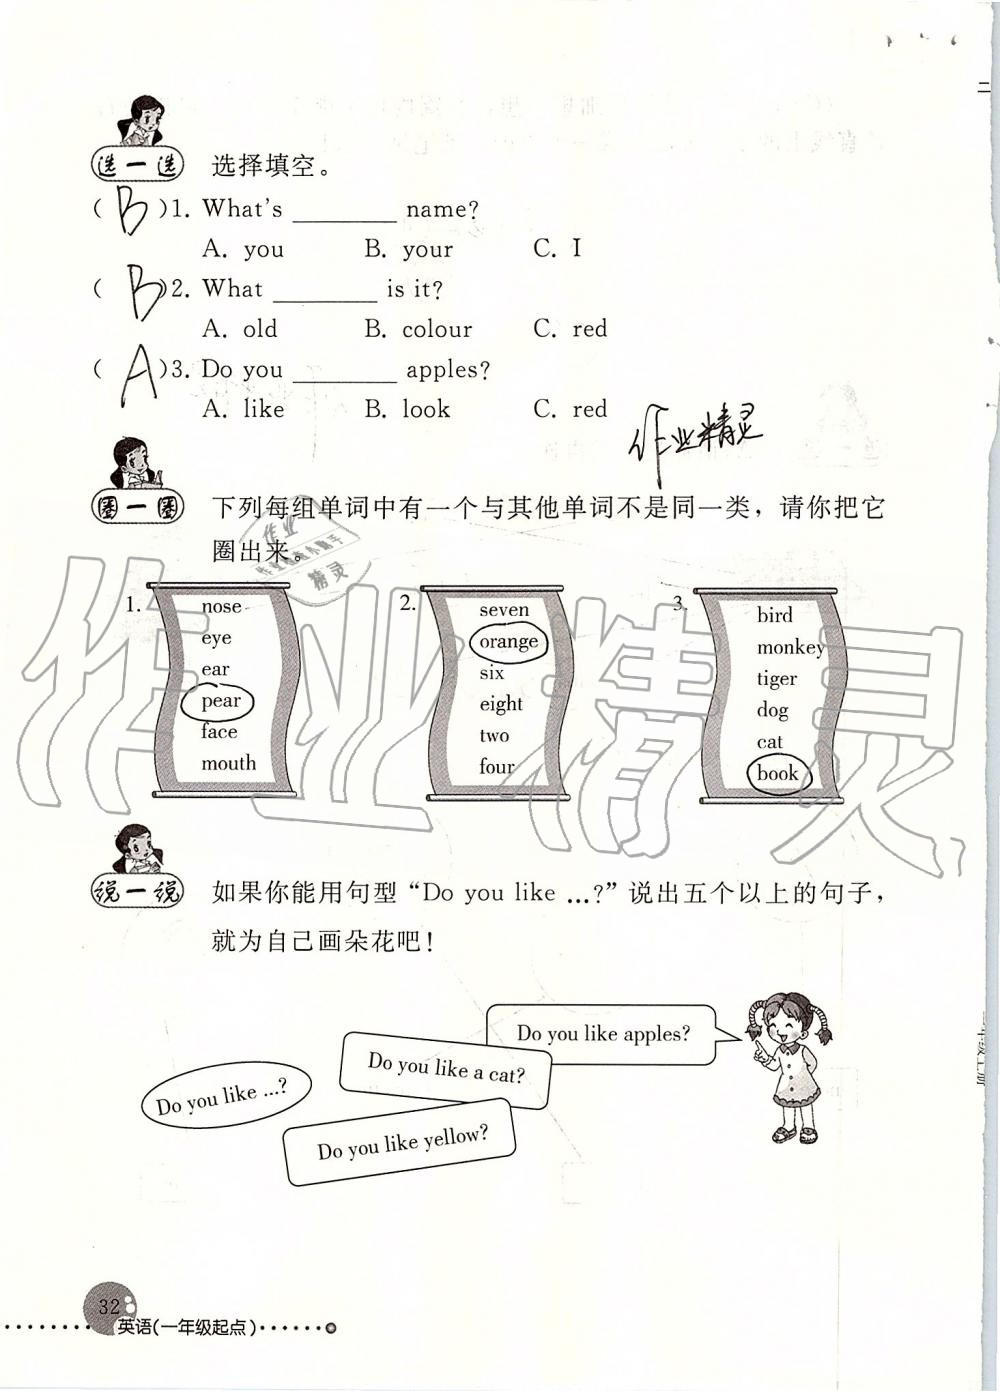 选一选 选择填空。
( B )1. What's ________ name?
A. you B. your C. I
( B )2. What ________ is it?
A. old B. colour C. red
( A )3. Do you ________ apples?
A. like B. look C. red
作业精灵
圈一圈 下列每组单词中有一个与其他单词不是同一类，请你把它
圈出来。
1.
nose
eye
ear
pear
face
mouth
2.
seven
orange
six
eight
two
four
3.
bird
monkey
tiger
dog
cat
book
作业
精灵
作业精灵
说一说 如果你能用句型“Do you like …?”说出五个以上的句子，
就为自己画朵花吧！
Do you like apples?
Do you like a cat?
Do you like …?
Do you like yellow?
32
英语(一年级起点)
二
年级上册